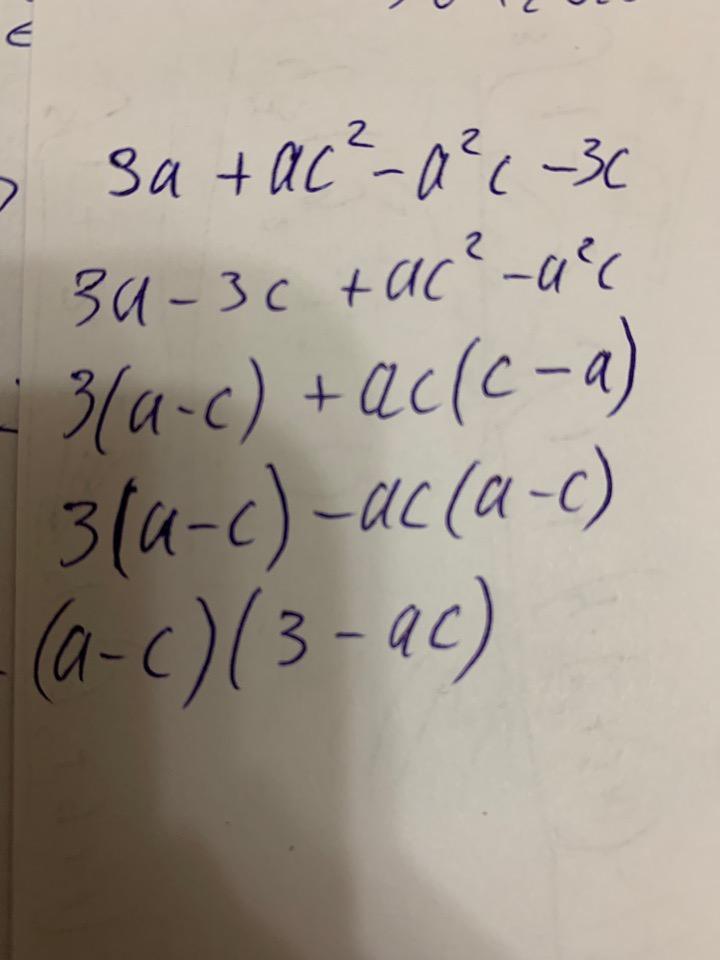 3a + ac² - a²c - 3c
3a - 3c + ac² - a²c
3(a-c) + ac(c - a)
3(a-c) - ac(a-c)
(a-c)(3 - ac)